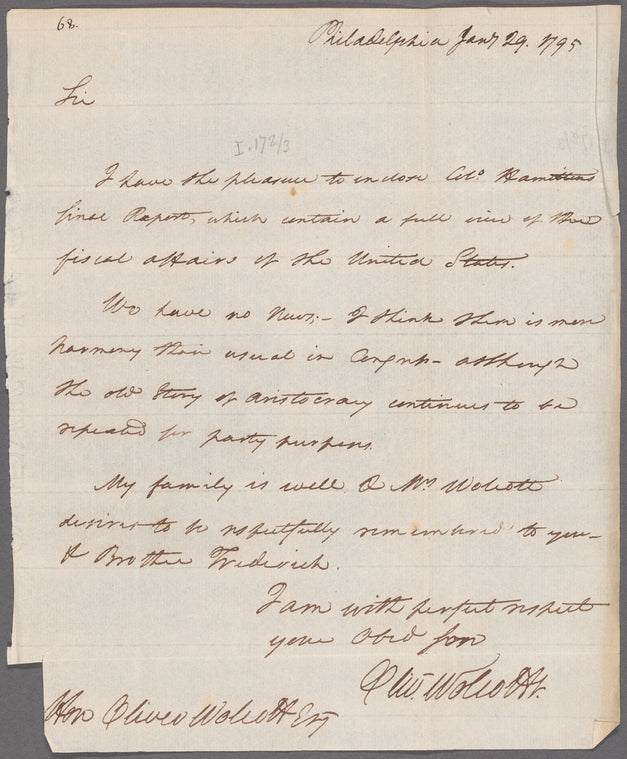 68.
Philadelphia Jany 29. 1795
Sir
I.172/3
I have the pleasure to inclose Colo. Hamiltons
final Report, which contain a full view of the
fiscal affairs of the United States.
We have no News;- I think there is more
harmony than usual in Congress- although
the old Story of aristocracy continues to be
repeated for party purposes.
My family is well & Mrs Wolcott
desires to be respectfully remembered to you-
& Brother Frederick.
I am with perfect respect
your Obed son
Oliv. Wolcott Jr.
Hon Oliver Wolcott Esq